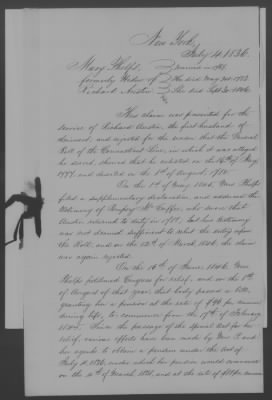 New York,
July 4. 1836.
Mary Phelps, married in 1785.
formerly Widow of He died May 30. 1783
Richard Austin She died Sept 30. 1846.
This claim was presented for the
service of Richard Austin, the first husband of
claimant, and rejected for the reason that the General
Roll of the Connecticut Line, in which it was alleged
he served, showed that he enlisted on the 16th of May,
1777, and deserted on the 1st of August, 1780.
On the 1st of May, 1846, Mrs Phelps
filed a supplementary declaration, and adduced the
testimony of Humphrey Mc Coffee, who swore that
Austin returned to duty in 1781, but his testimony
was not deemed sufficient to rebut the entry upon
the Roll, and on the 12th of March 1846, the claim
was again rejected.
On the 16th of June, 1846, Mrs
Phelps petitioned Congress for relief, and on the 1st
of August of that year, that body passed a bill,
granting her a pension at the rate of $96 per annum
during life, to commence from the 17th of February
Since the passage of the special Act for her
relief, various efforts have been made by Mrs P. and
her agents to obtain a pension under the Act of
July 4, 1836, under which her pension would commence
on the 4th of March 1831, and at the rate of per annum